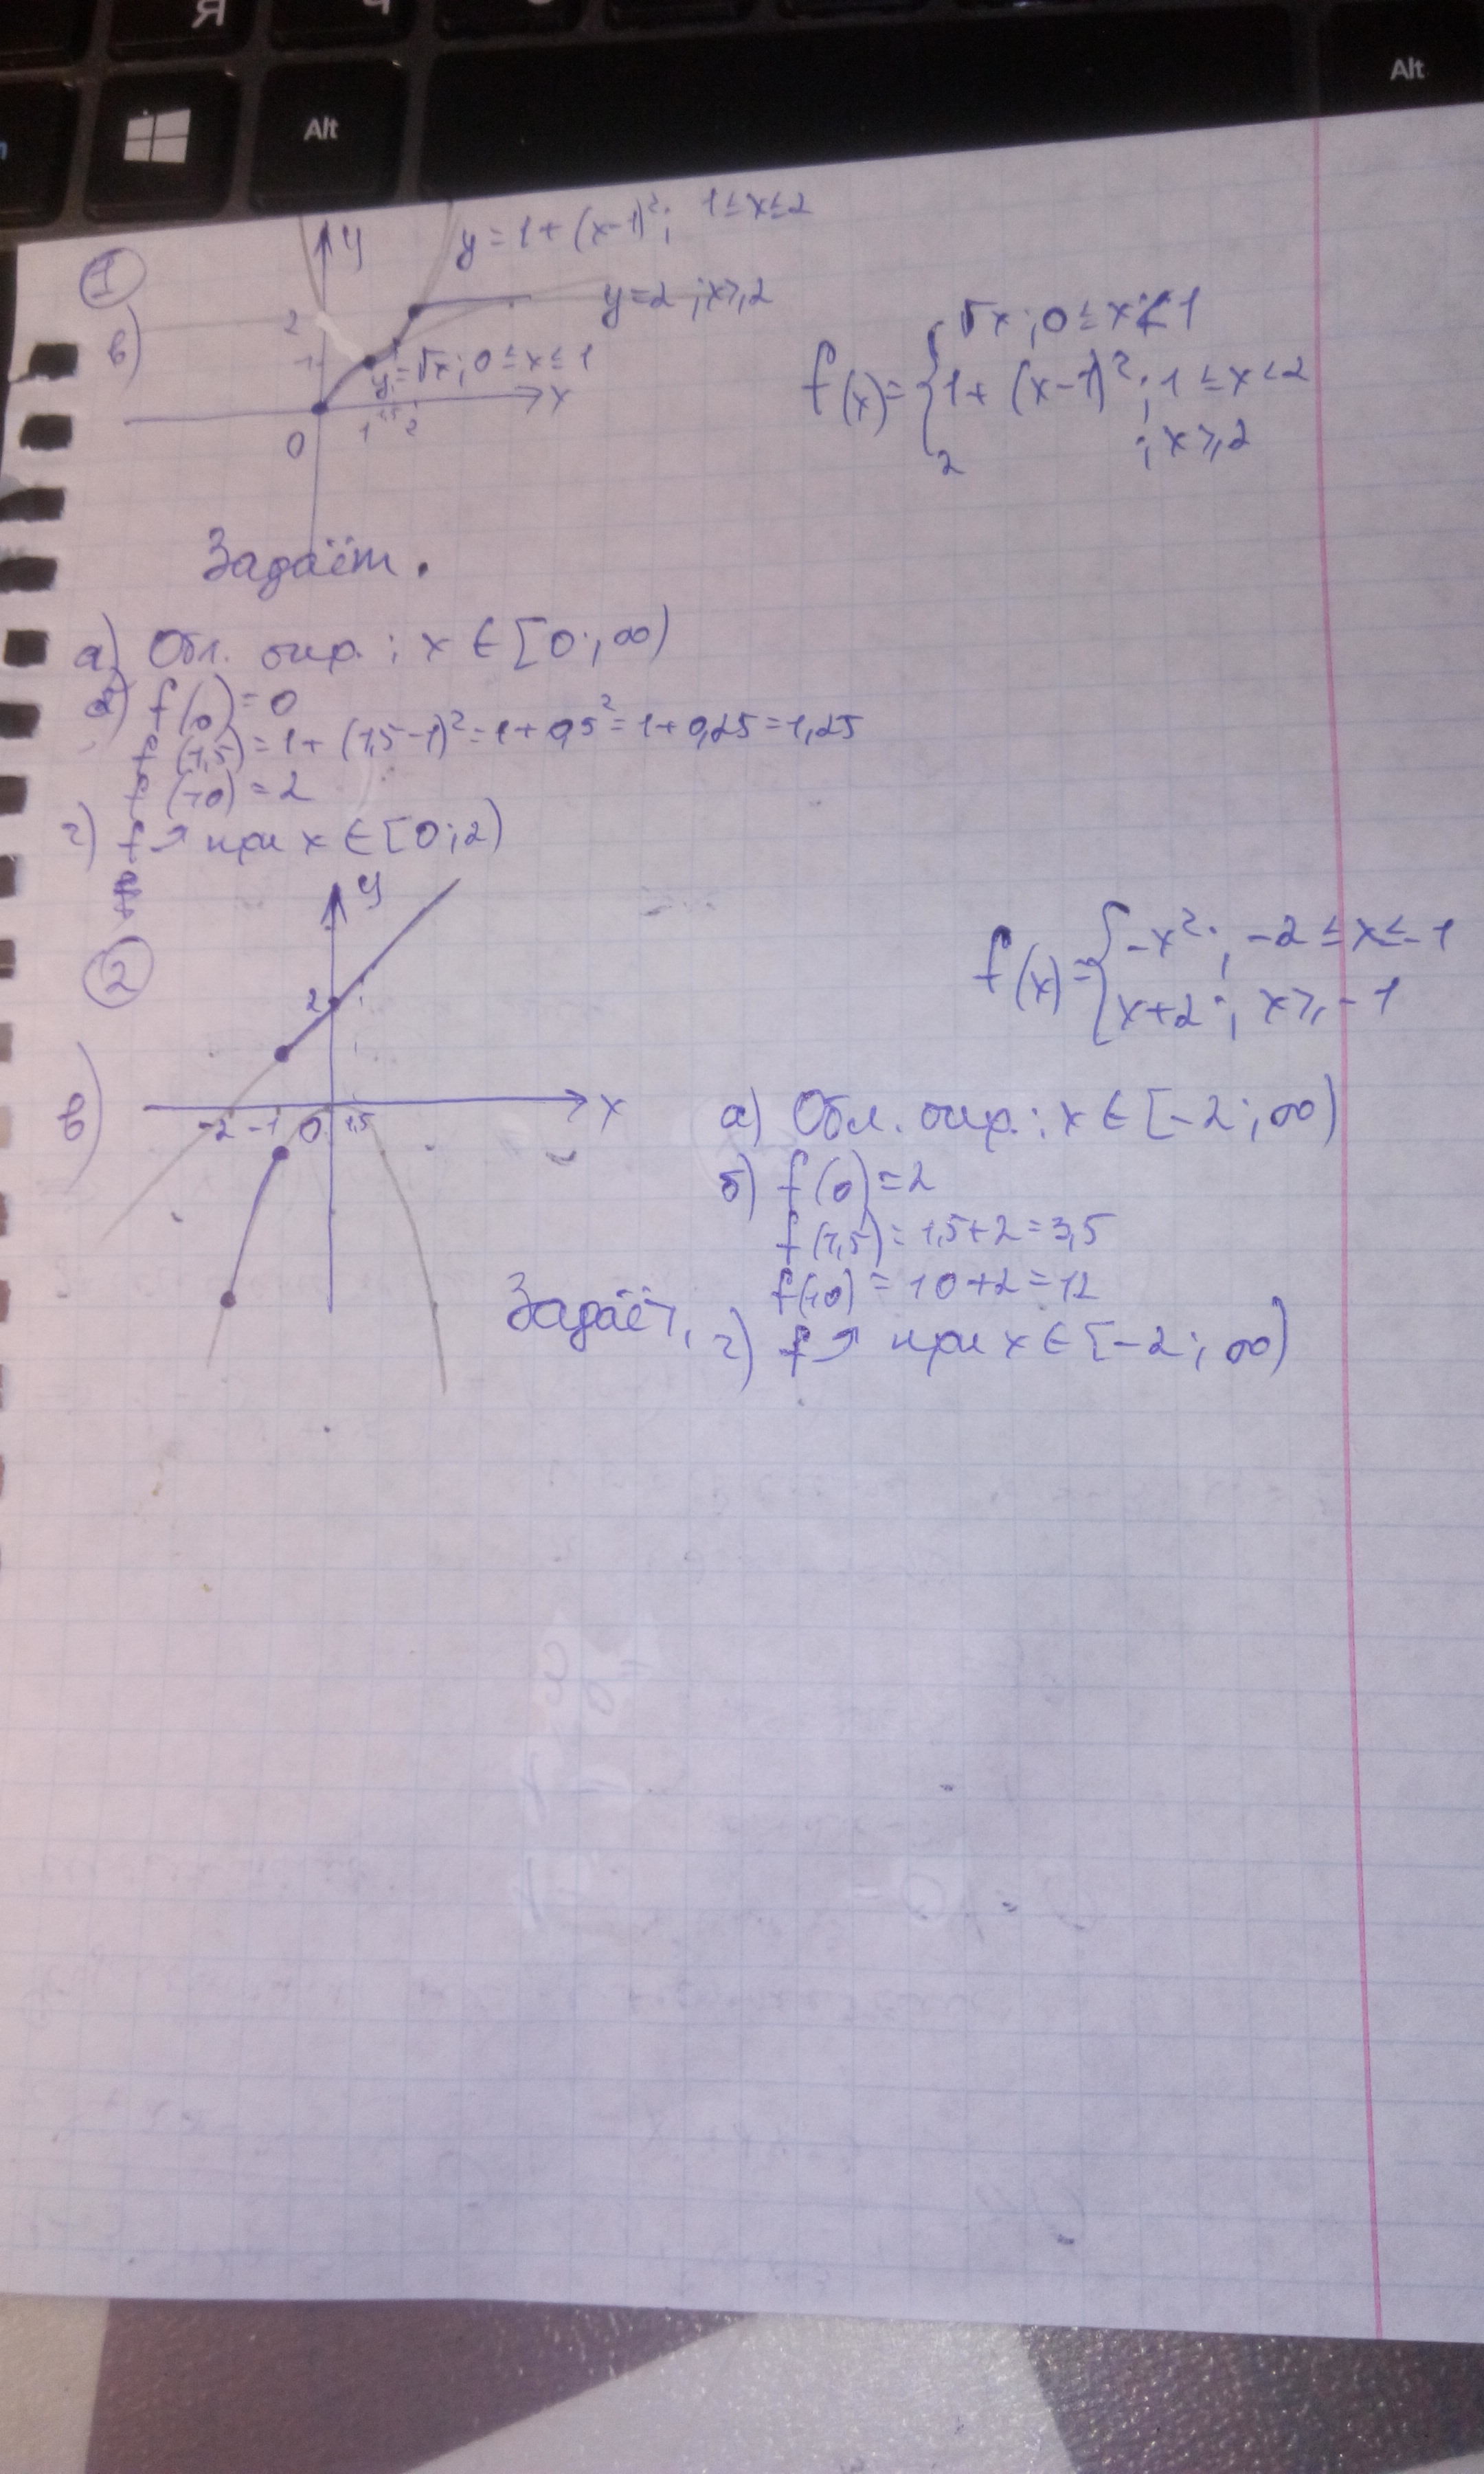 Я
Ч
Alt
Alt
1
y = 1 + (x-1)²; 1 ≤ x ≤ 2
y
y = 2 ; x ≥ 2
2
в)
1
y = √x ; 0 ≤ x ≤ 1
x
0
1 1,5 2
f(x) = { √x ; 0 ≤ x < 1
1 + (x-1)² ; 1 ≤ x < 2
2 ; x ≥ 2
Задаёт.
а) Обл. опр. : x ∈ [0 ; ∞)
f(0) = 0
f(1,5) = 1 + (1,5-1)² = 1 + 0,5² = 1 + 0,25 = 1,25
f(10) = 2
г) f ↗ при x ∈ [0 ; 2)
y
2
f(x) = { -x² ; -2 ≤ x ≤ -1
x+2 ; x ≥ -1
2
в)
-2 -1 0 1,5
x
а) Обл. опр. : x ∈ [-2 ; ∞)
б) f(0) = 2
f(1,5) = 1,5 + 2 = 3,5
f(10) = 10 + 2 = 12
Задаёт.
г) f ↗ при x ∈ [-2 ; ∞)